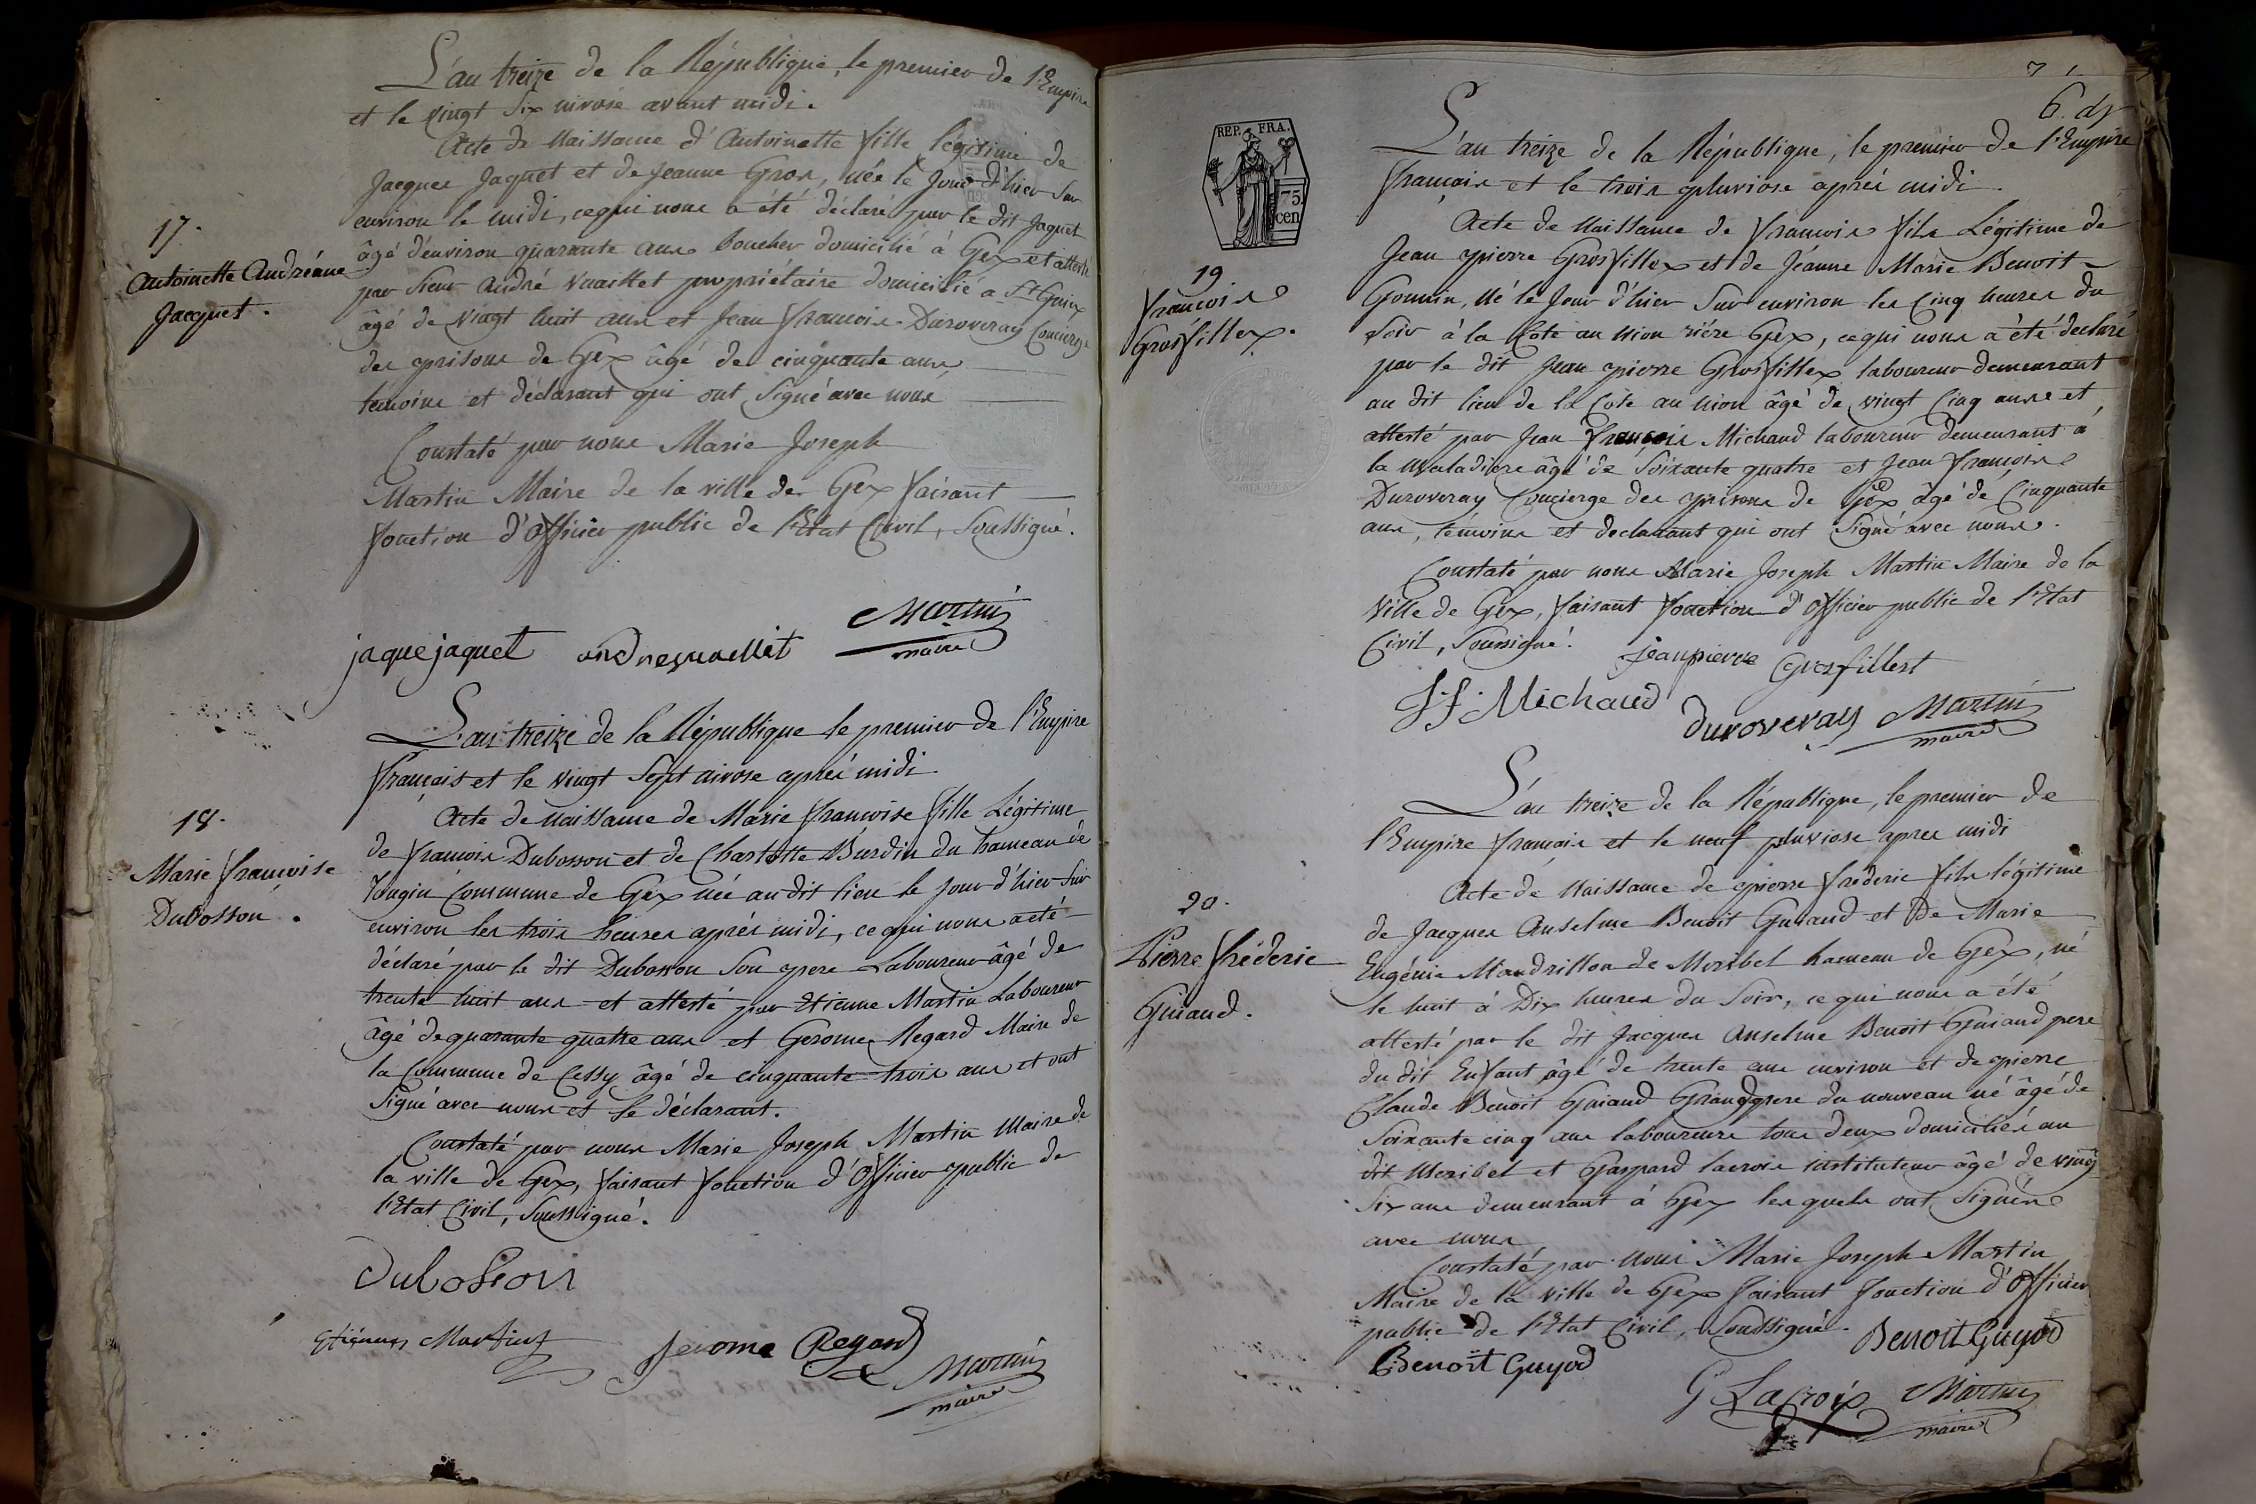 L'an treize de la République, le premier de l'Empire
et le vingt six nivose avant midi.
Acte de Naissance d'Antoinette fille légitime de
Jacques Jaquet et de Jeanne Gros, née le jour d'hier sur
environ le midi, cequi nous a été déclaré par le dit Jaquet
âgé d'environ quarante ans boucher domicilié à Gex et attesté
par Sieur André Vuaillet propriétaire domicilié a St Genix
âgé de vingt huit ans et Jean françois Duroveray Concierge
des prisons de Gex âgé de cinquante ans,
temoins et déclarant qui ont signé avec nous
Constaté par nous Marie Joseph
Martin Maire de la ville de Gex faisant
fonction d'officier public de l'Etat Civil, Soussigné.
17.
Antoinette Andréane
Jacquet.
jaque jaquet
Martin
maire
L'an treize de la République le premier de l'Empire
français et le vingt Sept nivose après midi
Acte de naissance de Marie françoise fille Légitime
de françois Dubosson et de Charlotte Burdin du hameau de
Tougin Commune de Gex née au dit lieu le jour d'hier sur
environ les trois heures après midi, ce qui nous a eté
déclaré par le dit Dubosson Son pere Laboureur âgé de
trente huit ans et attesté par Etienne Martin Laboureur
âgé de quarante quatre ans et Gerome Regard Maire de
la Commune de Cessy âgé de cinquante trois ans et ont
Signé avec nous et le déclarant.
Constaté par nous Marie Joseph Martin Maire de
la ville de Gex, faisant fonction d'officier public de
l'Etat Civil, Soussigné.
18.
Marie françoise
Dubosson.
Dubosson
Etienne Martin
Jerome Regard
Martin
maire
7
6.
REP. FRA.
75
cen
L'an treize de la République, le premier de l'Empire
français et le trois pluviose après midi.
Acte de Naissance de françois fils Légitime de
Jean pierre Grosfillex et de Jeanne Marie Benoit
Gounin, né le jour d'hier sur environ les cinq heures du
soir à la Cote au nion riére Gex, cequi nous a été déclaré
par le dit Jean pierre Grosfillex laboureur demeurant
au dit lieu de la Côte au nion âgé de vingt Cinq ans et
attesté par Jean françois Michaud laboureur demeurant à
la Maladiere âgé de Soixante quatre et Jean françois
Duroveray Concierge des prisons de Gex âgé de Cinquante
ans, témoins et déclarant qui ont signé avec nous.
Constaté par nous Marie Joseph Martin Maire de la
Ville de Gex, faisant fonction d'officier public de l'Etat
Civil, Soussigné.
19
françois
Grosfillex.
jean pierre Grosfillest
J. f. Michaud
Duroveray
Martin
maire
L'an treize de la République, le premier de
l'Empire français et le neuf pluviose apres midi
Acte de Naissance de pierre fréderic fils légitime
de Jacques Anselme Benoit Guiaud et De Marie
Eugénie Mandrillon de Moribel hameau de Gex, né
le huit à Dix heures du Soir, ce qui nous a été
attesté par le dit Jacques Anselme Benoit Guiaud pere
du dit Enfant âgé de trente ans environ et de pierre
Claude Benoit Guiaud Grand pere du nouveau né âgé de
Soixante cinq ans laboureurs tous deux domiciliés au
dit Meribel et Gaspard lacroix instituteur âgé de vingt
Six ans demeurant à Gex lesquels ont Signés
avec nous
Constaté par nous Marie Joseph Martin
Maire de la Ville de Gex faisant fonction d'Officier
public de l'Etat Civil, Soussigné.
20.
Pierre fréderic
Guiaud.
Benoit Guyod
Benoit Guyod
G Lacroix
Martin
maire